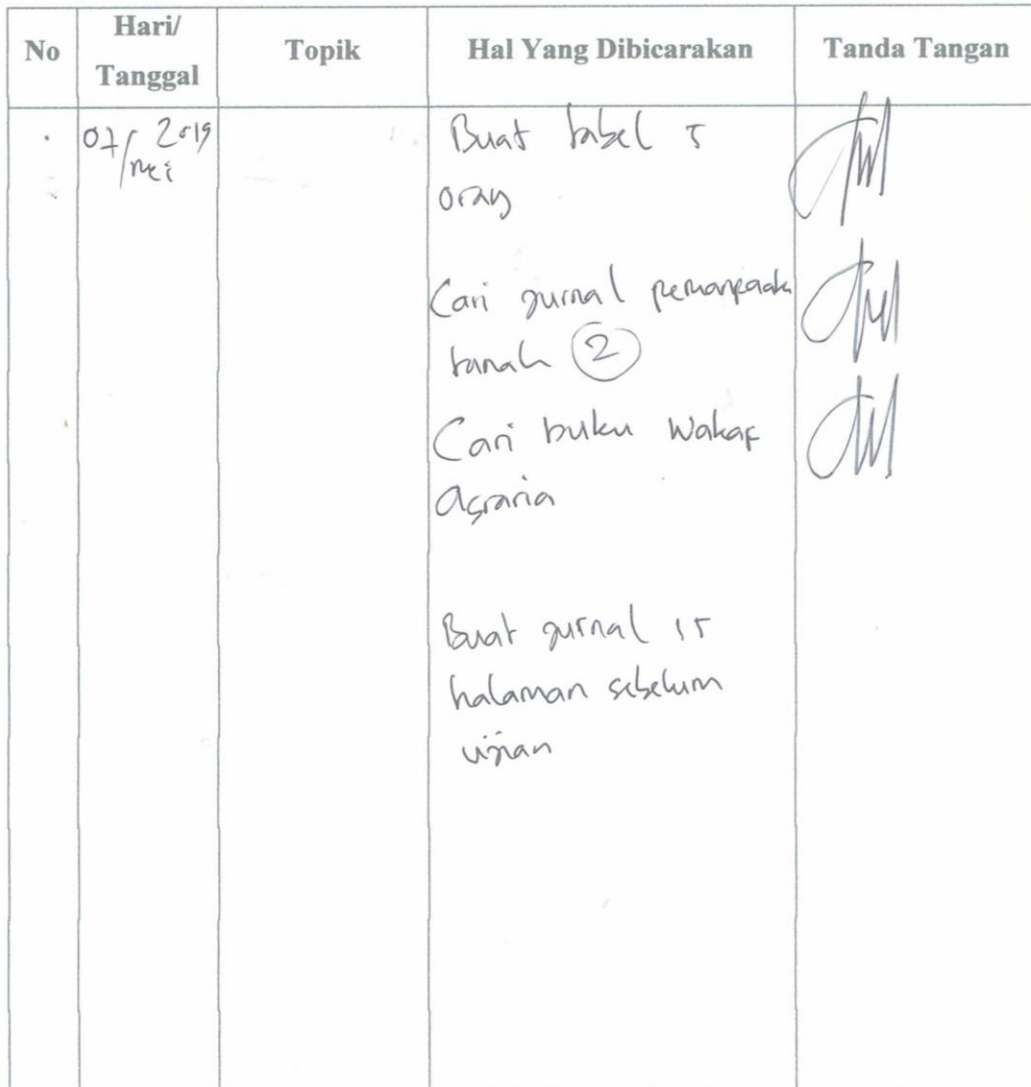 No Hari/ Tanggal Topik Hal Yang Dibicarakan Tanda Tangan
07/Mei 2019
Buat tabel 5
orang
Cari jurnal
tanah 2
Cari buku wakaf
agraria
Buat jurnal 15
halaman sebelum
ujian